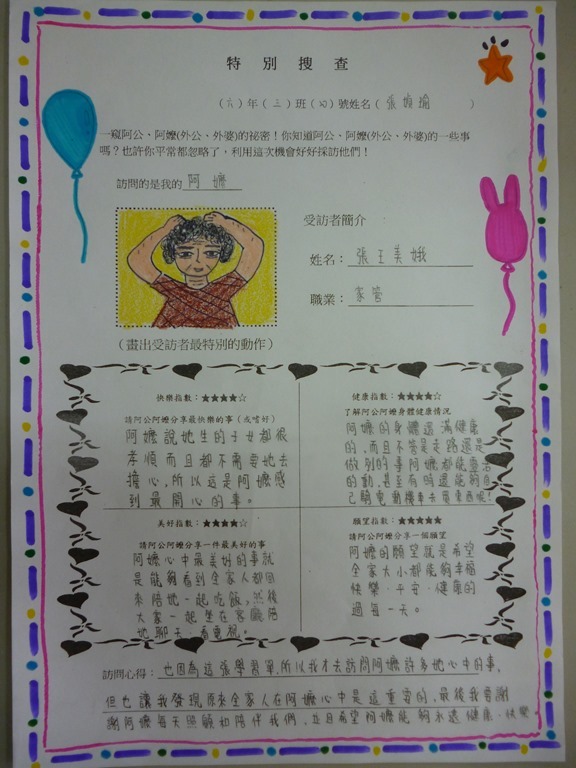 特別搜查
(六)年(三)班(四)號姓名(張嬪瑜)
一窺阿公、阿嬤(外公、外婆)的祕密！你知道阿公、阿嬤(外公、外婆)的一些事
嗎？也許你平常都忽略了，利用這次機會好好採訪他們！
訪問的是我的阿嬤
受訪者簡介
姓名：張王美娥
職業：家管
(畫出受訪者最特別的動作)
快樂指數：★★★★☆
請阿公阿嬤分享最快樂的事(或嗜好)
阿嬤說她生的子女都很
孝順而且都不需要她去
擔心,所以這是阿嬤感
到最開心的事。
健康指數：★★★★☆
了解阿公阿嬤身體健康情況
阿嬤的身體還滿健康
的,而且不管是走路還是
做別的事阿嬤都能靈活
的動,甚至有時還能夠自
己騎電動機車去買東西呢!
美好指數：★★★★☆
請阿公阿嬤分享一件最美好的事
阿嬤心中最美好的事就
是能夠看到全家人都回
來陪她一起吃飯,然後
大家一起坐在客廳陪
她聊天、看電視。
願望指數：★★★★★
請阿公阿嬤分享一個願望
阿嬤的願望就是希望
全家大小都能夠幸福
快樂、平安、健康的
過每一天。
訪問心得：也因為這張學習單,所以我才去訪問阿嬤許多她心中的事,
但也讓我發現原來全家人在阿嬤心中是這重要的,最後我要謝
謝阿嬤每天照顧和陪伴我們,並且希望阿嬤能夠永遠健康、快樂。